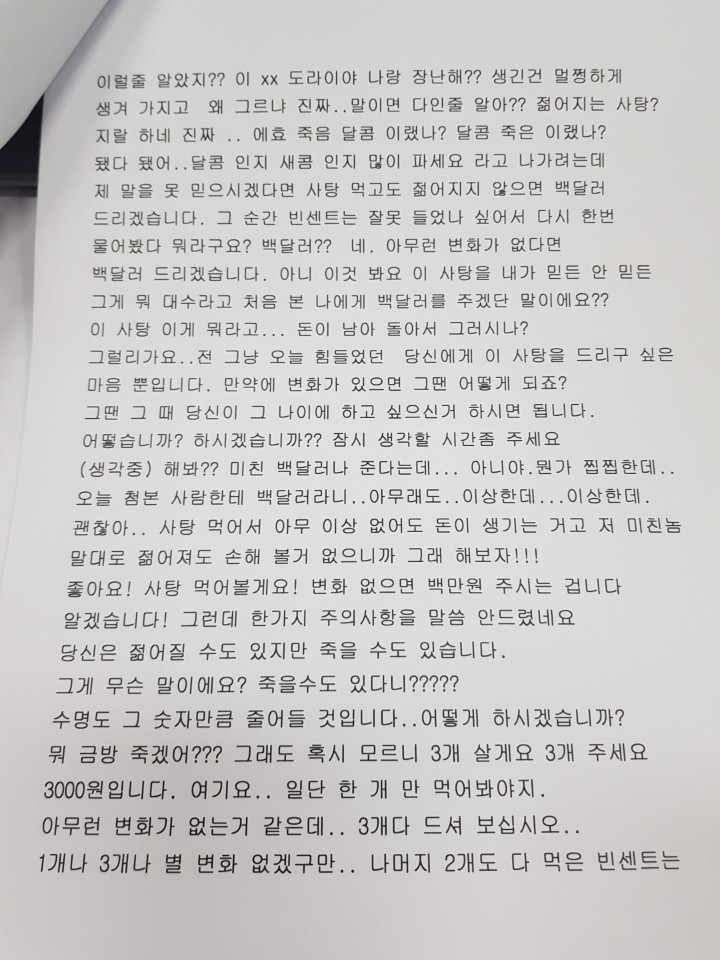 이럴줄 알았지?? 이 xx 도라이야 나랑 장난해?? 생긴건 멀쩡하게
생겨 가지고 왜 그르냐 진짜..말이면 다인줄 알아?? 젊어지는 사탕?
지랄 하네 진짜 .. 에효 죽음 달콤 이랬나? 달콤 죽은 이랬나?
됐다 됐어..달콤 인지 새콤 인지 많이 파세요 라고 나가려는데
제 말을 못 믿으시겠다면 사탕 먹고도 젊어지지 않으면 백달러
드리겠습니다. 그 순간 빈센트는 잘못 들었나 싶어서 다시 한번
물어봤다 뭐라구요? 백달러?? 네. 아무런 변화가 없다면
백달러 드리겠습니다. 아니 이것 봐요 이 사탕을 내가 믿든 안 믿든
그게 뭐 대수라고 처음 본 나에게 백달러를 주겠단 말이에요??
이 사탕 이게 뭐라고... 돈이 남아 돌아서 그러시나?
그럴리가요..전 그냥 오늘 힘들었던 당신에게 이 사탕을 드리구 싶은
마음 뿐입니다. 만약에 변화가 있으면 그땐 어떻게 되죠?
그땐 그 때 당신이 그 나이에 하고 싶으신거 하시면 됩니다.
어떻습니까? 하시겠습니까?? 잠시 생각할 시간좀 주세요
(생각중) 해봐?? 미친 백달러나 준다는데... 아니야.뭔가 찝찝한데..
오늘 첨본 사람한테 백달러라니..아무래도..이상한데...이상한데.
괜찮아.. 사탕 먹어서 아무 이상 없어도 돈이 생기는 거고 저 미친놈
말대로 젊어져도 손해 볼거 없으니까 그래 해보자!!!
좋아요! 사탕 먹어볼게요! 변화 없으면 백만원 주시는 겁니다
알겠습니다! 그런데 한가지 주의사항을 말씀 안드렸네요
당신은 젊어질 수도 있지만 죽을 수도 있습니다.
그게 무슨 말이에요? 죽을수도 있다니?????
수명도 그 숫자만큼 줄어들 것입니다..어떻게 하시겠습니까?
뭐 금방 죽겠어??? 그래도 혹시 모르니 3개 살게요 3개 주세요
3000원입니다. 여기요.. 일단 한 개 만 먹어봐야지.
아무런 변화가 없는거 같은데.. 3개다 드셔 보십시오..
1개나 3개나 별 변화 없겠구만.. 나머지 2개도 다 먹은 빈센트는